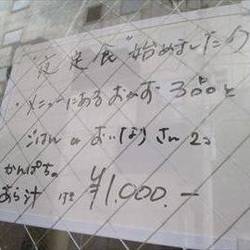 "夜定食"始めました!
・メニューにあるおかず 3品と
ごはん or おいなりさん 2コ
かんぱちの
あら汁 付 ¥1,000.-